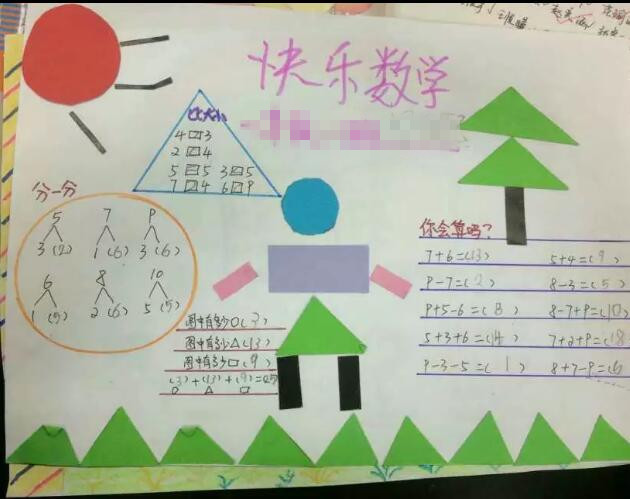 快乐数学
比大小
4 3
2 4
5 5 3 5
7 4 6 9
分一分
5 7 9
3(2) 1(6) 3(6)
6 8 10
1(5) 2(6) 5(5)
你会算吗?
7+6=(13) 5+4=(9)
9-7=(2) 8-3=(5)
9+5-6=(8) 8-7+9=(10)
5+3+6=(14) 7+2+9=(18)
9-3-5=(1) 8+7-9=(6)
图中有多少○(3)
图中有多少△(13)
图中有多少□(9)
(3)+(13)+(9)=(25)
○ △ □